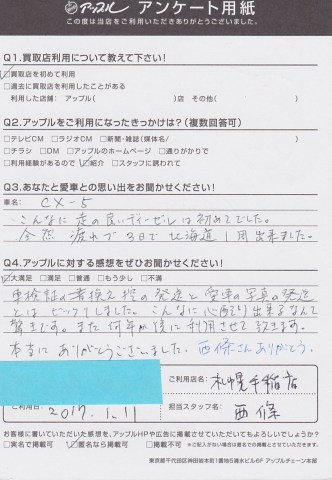 アップル アンケート用紙
この度は当店をご利用いただきありがとうございました。
Q1.買取店利用について教えて下さい!
☑買取を初めて利用
□過去に買取を利用したことがある
利用した店舗: アップル( )店 その他( )
Q2.アップルをご利用になったきっかけは?(複数回答可)
□テレビCM □ラジオCM □新聞・雑誌(媒体名/ )
□チラシ □DM □アップルのホームページ □通りがかりで
□利用経験があるので ☑紹介 □スタッフに誘われて
Q3.あなたと愛車との思い出をお聞かせください!
車名: CX-5
こんなに走の良いディーゼルは初めてでした。
全然疲れず3日で北海道1周出来ました。
Q4.アップルに対する感想をぜひお聞かせください!
☑大満足 □満足 □普通 □もう少し □不満
車検証の書換え控の発送と愛車の写真の発送
とはビックリしました。こんなに心配り出来るなんて
驚きです。また何年か後に利用させて頂きます。
本当にありがとうございました。西條さんありがとう。
ご利用店名: 札幌手稲店
ご利用日: 2017.1.11
担当スタッフ名: 西條
お客様に書いていただいた感想を、アップルHPや広告に掲載させていただいてもよろしいでしょうか?
□実名で掲載可 ☑匿名なら掲載可 □掲載不可 ※ご記入がない場合は匿名での掲載可とさせていただきます。
東京都千代田区神田岩本町1番地5清水ビル6F アップルチェーン本部